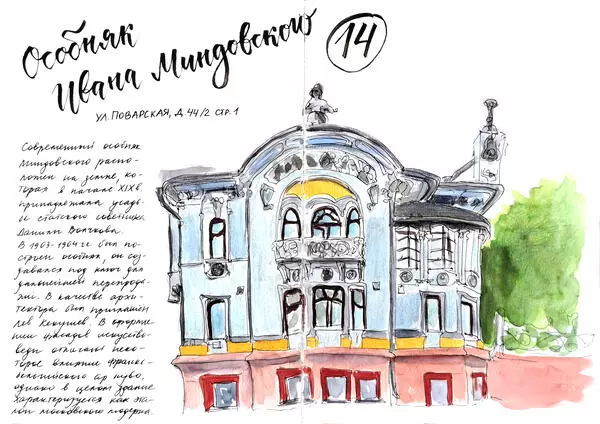 Особняк
Ивана Миндовского
14
УЛ. ПОВАРСКАЯ, Д. 44/2 СТР. 1
Современный особняк
Миндовского распо-
ложен на земле, ко-
торая в начале XIX в.
принадлежала усадь-
бе статского советника
Данилы Волчкова.
В 1903-1904 гг был по-
строен особняк, он соз-
давался под ключ для
дальнейшей перепрода-
жи. В качестве архи-
тектора был приглашён
Лев Кекушев. В оформле-
нии фасадов искусство-
веды отмечают неко-
торое влияние франко-
бельгийского ар нуво,
однако в целом здание
характеризуется как эта-
лон московского модерна